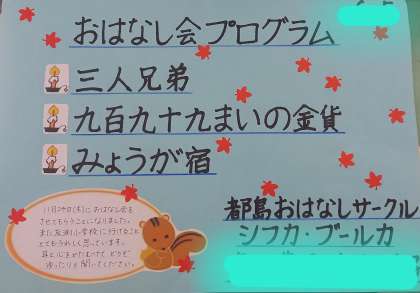 おはなし会プログラム
三人兄弟
九百九十九まいの金貨
みょうが宿
11月24日(木)におはなし会を
させてもらうことになりました。
また友渕小学校に行けること
とてもうれしく思っています。
耳と心をかたむけて どうぞ
ゆったりと聞いてください。
都島おはなしサークル
シフカ・ブールカ